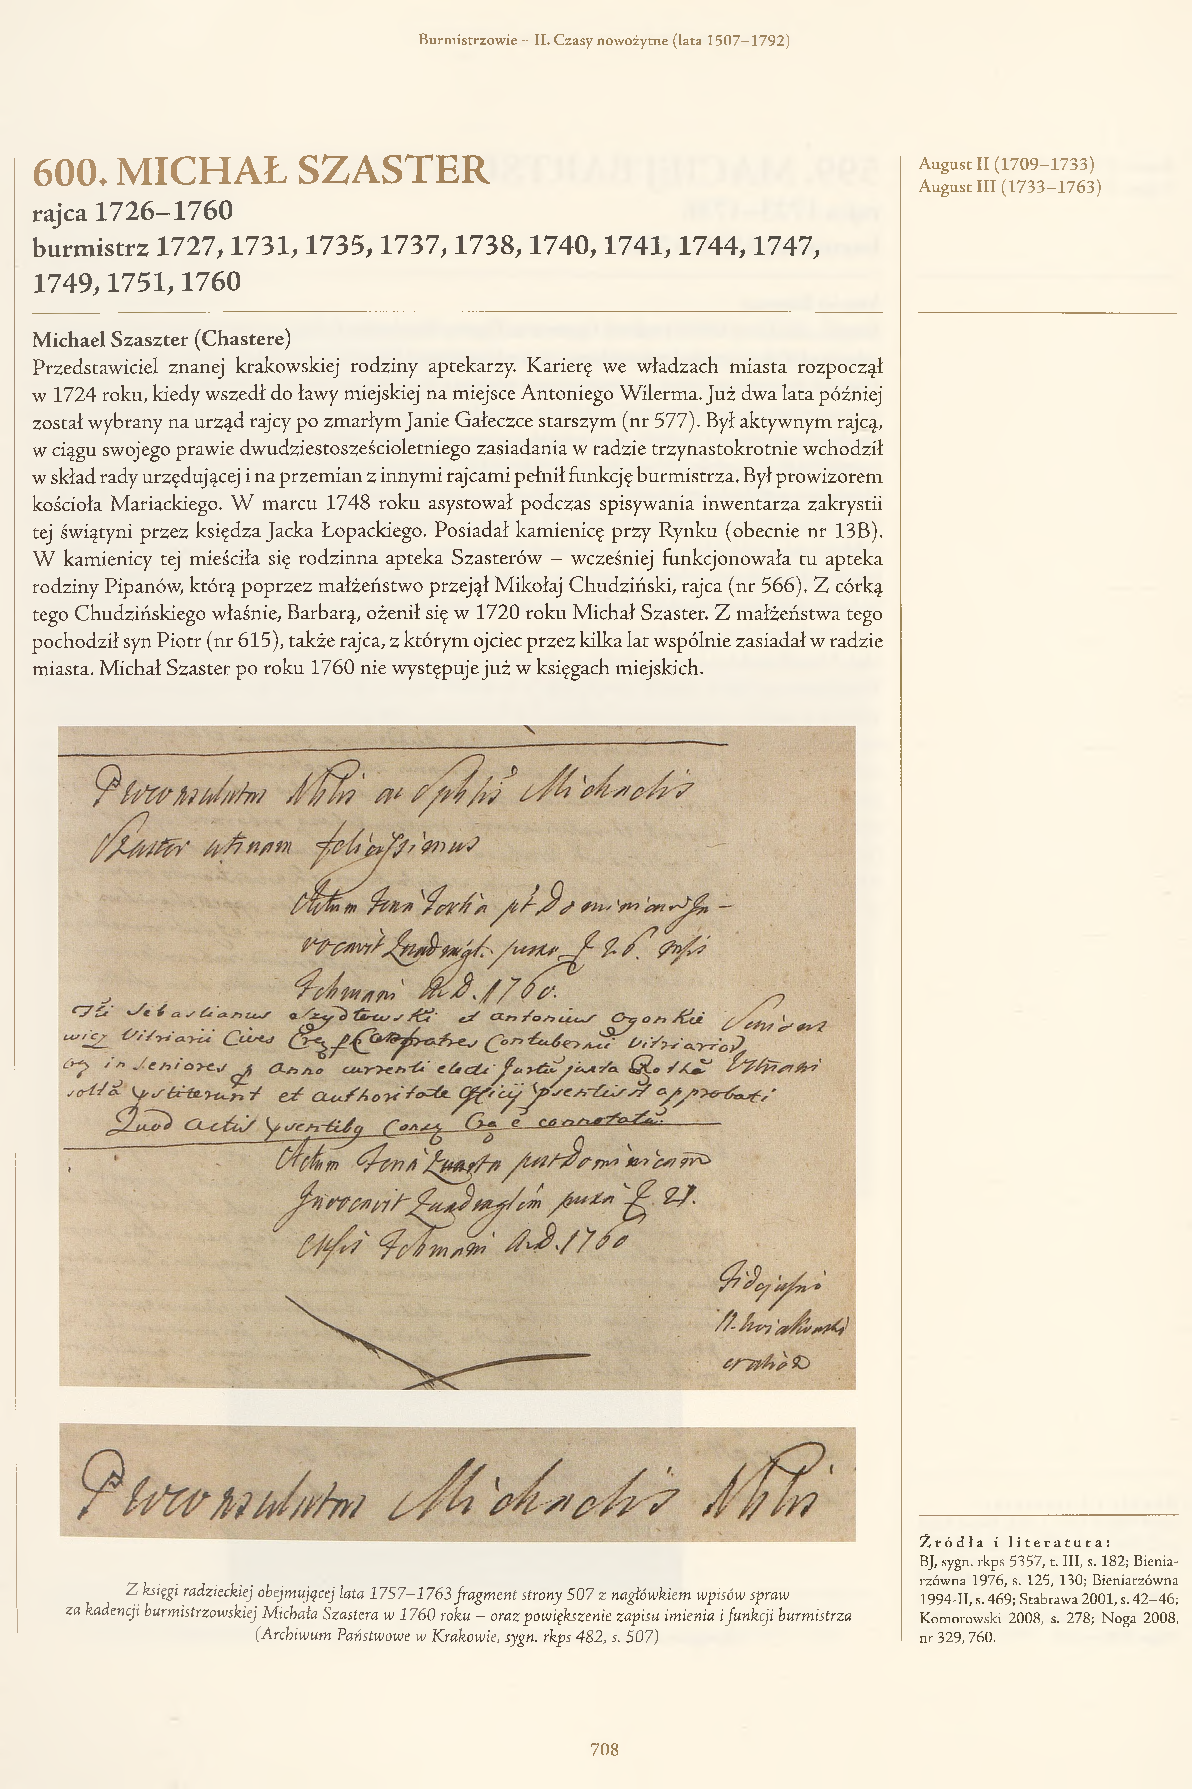 Burmistrzowie – II. Czasy nowożytne (lata 1507–1792)
600. MICHAŁ SZASTER
rajca 1726–1760
burmistrz 1727, 1731, 1735, 1737, 1738, 1740, 1741, 1744, 1747,
1749, 1751, 1760
August II (1709–1733)
August III (1733–1763)
Michael Szaszter (Chastere)
Przedstawiciel znanej krakowskiej rodziny aptekarzy. Karierę we władzach miasta rozpoczął
w 1724 roku, kiedy wszedł do ławy miejskiej na miejsce Antoniego Wilerma. Już dwa lata później
został wybrany na urząd rajcy po zmarłym Janie Gałeczce starszym (nr 577). Był aktywnym rajcą,
w ciągu swojego prawie dwudziestosześcioletniego zasiadania w radzie trzynastokrotnie wchodził
w skład rady urzędującej i na przemian z innymi rajcami pełnił funkcję burmistrza. Był prowizorem
kościoła Mariackiego. W marcu 1748 roku asystował podczas spisywania inwentarza zakrystii
tej świątyni przez księdza Jacka Łopackiego. Posiadał kamienicę przy Rynku (obecnie nr 13B).
W kamienicy tej mieściła się rodzinna apteka Szasterów – wcześniej funkcjonowała tu apteka
rodziny Pipanów, którą poprzez małżeństwo przejął Mikołaj Chudziński, rajca (nr 566). Z córką
tego Chudzińskiego właśnie, Barbarą, ożenił się w 1720 roku Michał Szaster. Z małżeństwa tego
pochodził syn Piotr (nr 615), także rajca, z którym ojciec przez kilka lat wspólnie zasiadał w radzie
miasta. Michał Szaster po roku 1760 nie występuje już w księgach miejskich.
Proconsulatus Nblis ac Michaelis
Szaster utinam felicissimus
Actum post
vocavit
A.D. 1760.
Sebastianus Szydłowski et Antonius
Cives Contubernii
in Seniores anno currenti electi juxta
et authoritate approbati
Quod actis
Actum Dominicam
Invocavit
A.D. 1760
Proconsulatus Michaelis Nblis
Z księgi radzieckiej obejmującej lata 1757–1763 fragment strony 507 z nagłówkiem wpisów spraw
za kadencji burmistrzowskiej Michała Szastera w 1760 roku – oraz powiększenie zapisu imienia i funkcji burmistrza
(Archiwum Państwowe w Krakowie, sygn. rkps 482, s. 507)
Źródła i literatura:
BJ, sygn. rkps 5357, t. III, s. 182; Bienia-
rzówna 1976, s. 125, 130; Bieniarzówna
1994-II, s. 469; Stabrawa 2001, s. 42–46;
Komorowski 2008, s. 278; Noga 2008,
nr 329, 760.
708